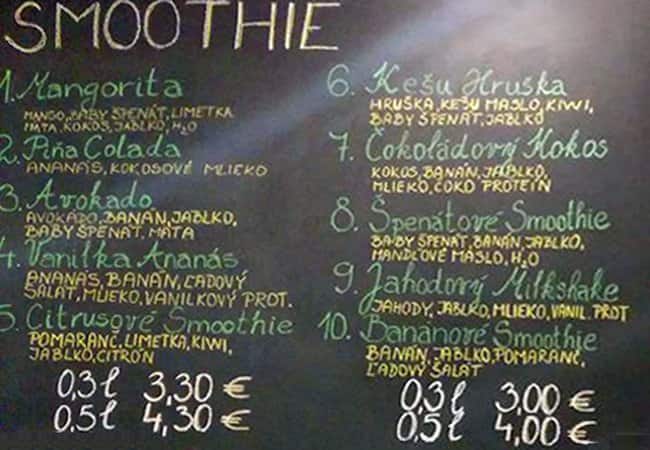 SMOOTHIE
1. Mangorita
MANGO, BABY ŠPENÁT, LIMETKA
MATA, KOKOS, JABLKO, H2O
2. Piňa Colada
ANANÁS, KOKOSOVÉ MLIEKO
3. Avokado
AVOKADO, BANÁN, JABLKO,
BABY ŠPENÁT, MATA
4. Vanilka Ananás
ANANÁS, BANÁN, ĽADOVÝ
ŠALAT, MLIEKO, VANILKOVÝ PROT.
5. Citrusové Smoothie
POMARANČ, LIMETKA, KIWI,
JABLKO, CITRÓN
0,3l 3,30 €
0.5l 4,30 €
6. Kešu Hruška
HRUŠKA, KEŠU MASLO, KIWI,
BABY ŠPENÁT, JABLKO
7. Čokoládový Kokos
KOKOS, BANÁN, JABLKO,
MLIEKO, ČOKO PROTEIN
8. Špenátové Smoothie
BABY ŠPENÁT, BANÁN, JABLKO,
MANDĽOVÉ MASLO, H2O
9. Jahodový Milkshake
JAHODY, JABLKO, MLIEKO, VANIL. PROT
10. Banánové Smoothie
BANÁN, JABLKO, POMARANČ,
ĽADOVÝ ŠALÁT
0,3l 3,00 €
0,5l 4,00 €